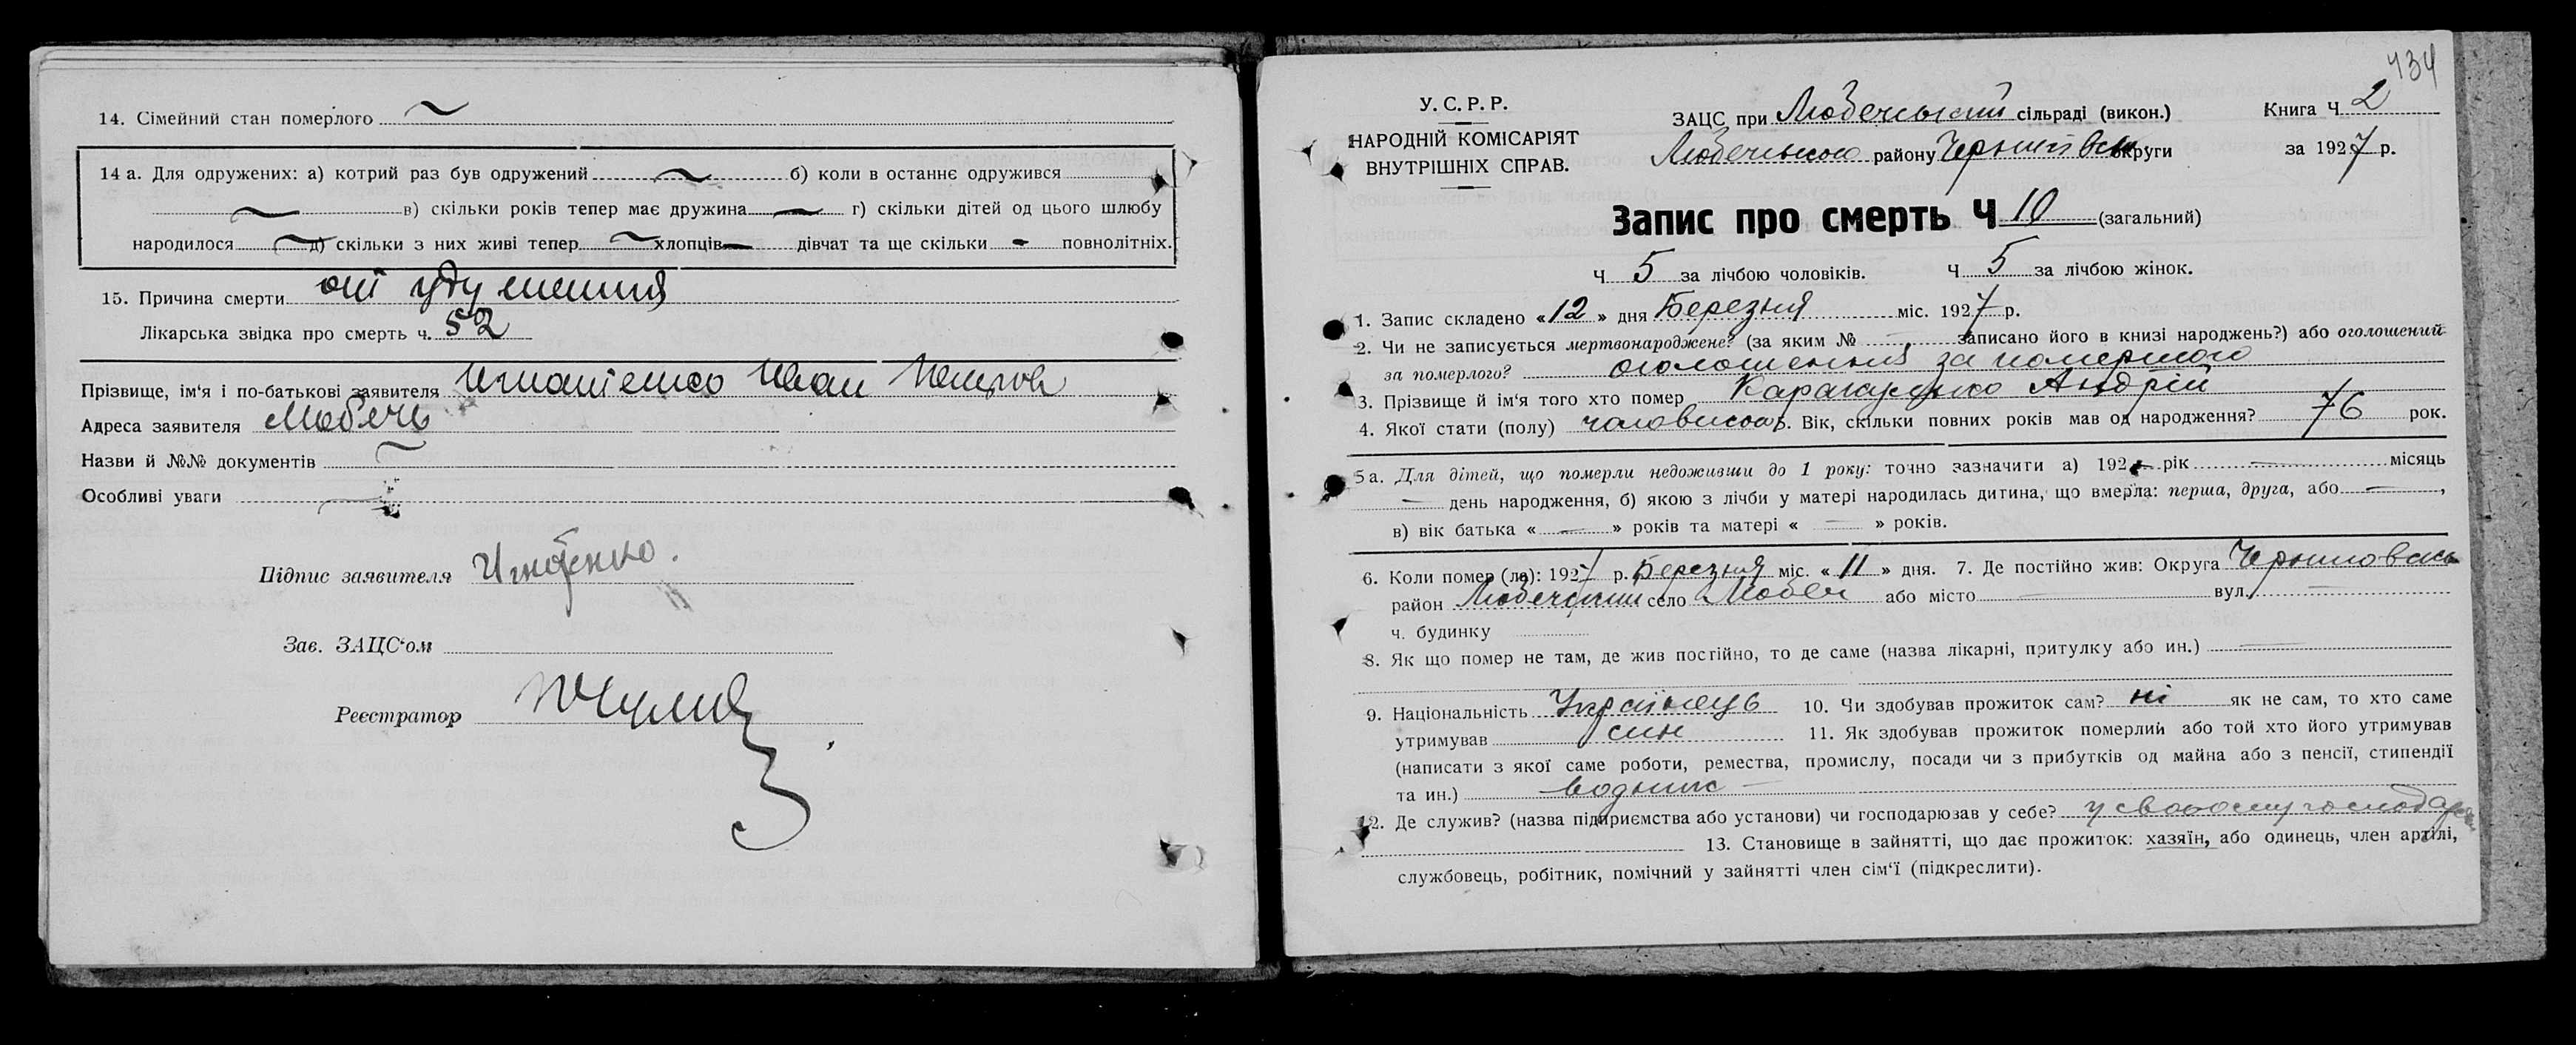 14. Сімейний стан померлого ~
14 а. Для одружених: а) котрий раз був одружений ~ б) коли в останнє одружився
~ в) скільки років тепер має дружина — г) скільки дітей од цього шлюбу
народилося ~ д) скільки з них живі тепер ~ хлопців — дівчат та ще скільки - повнолітніх.
15. Причина смерти от удушення
Лікарська звідка про смерть ч. 52
Прізвище, ім'я і по-батькові заявителя Игнатенко Иван
Адреса заявителя Любечь
Назви й №№ документів ~
Особливі уваги —
Підпис заявителя
Зав. ЗАЦС'ом
Реєстратор
434
У. С. Р. Р.
НАРОДНІЙ КОМІСАРІЯТ
ВНУТРІШНІХ СПРАВ.
ЗАЦС при Любечьский сільраді (викон.) Книга Ч 2
Любечського району Чернигівськ округи за 1927 р.
Запис про смерть Ч 10 (загальний)
Ч 5 за лічбою чоловіків. Ч 5 за лічбою жінок.
1. Запис складено «12» дня Березня міс. 1927 р.
2. Чи не записується мертвонароджене? (за яким № — записано його в книзі народжень?) або оголошений
за померлого? оголошення за помершого
3. Прізвище й ім'я того хто помер Андрій
4. Якої стати (полу) чоловікоа 5. Вік, скільки повних років мав од народження? 76 рок.
5 а. Для дітей, що померли недоживши до 1 року: точно зазначити а) 192 — рік — місяць
— день народження, б) якою з лічби у матері народилась дитина, що вмерла: перша, друга, або —,
в) вік батька « — » років та матері « — » років.
6. Коли помер (ла): 1927 р. Березня міс. «11» дня. 7. Де постійно жив: Округа Черниговськ
район Любечський село Любеч або місто — вул. —
ч. будинку
8. Як що помер не там, де жив постійно, то де саме (назва лікарні, притулку або ин.) —
9. Національність Українець 10. Чи здобував прожиток сам? ні як не сам, то хто саме
утримував син 11. Як здобував прожиток померлий або той хто його утримував
(написати з якої саме роботи, ремества, промислу, посади чи з прибутків од майна або з пенсії, стипендії
та ин.) водник —
12. Де служив? (назва підприємства або установи) чи господарюзав у себе? у своему господарс
13. Становище в зайнятті, що дає прожиток: хазяїн, або одинець, член артілі,
службовець, робітник, помічний у зайнятті член сім'ї (підкреслити).